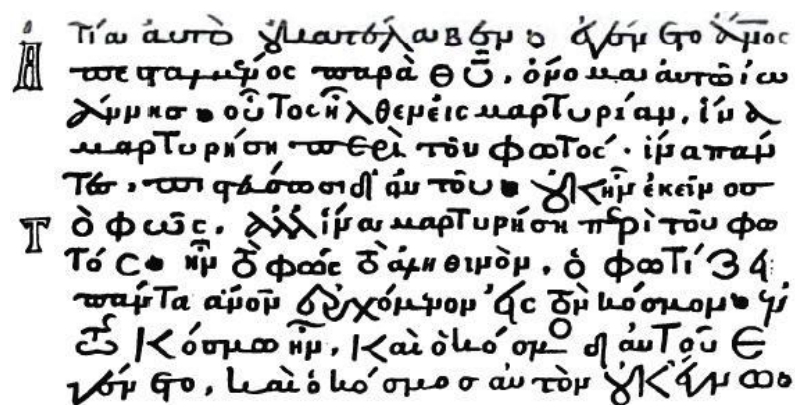 τία αὐτὸ οὐ κατέλαβεν· ἐγένετο ἄνος
ἀπεσταλμένος παρὰ θῦ, ὄνομα αὐτῶ ἰω
άννησ· οὗτος ἦλθεν εἰς μαρτυρίαν, ἵνα
μαρτυρήση περὶ τοῦ φωτός· ἵνα πάν
τες πιστεύσωσι δι' αὐτοῦ· οὐκ ἦν ἐκεῖνοσ
Τὸ φῶς, ἀλλ' ἵνα μαρτυρήση περὶ τοῦ φω
τός· ἦν τὸ φῶς τὸ ἀληθινὸν, ὃ φωτίζει
πάντα ἄνον ἐρχόμενον εἰς τὸν κόσμον· ἐν
τῶ κόσμω ἦν, καὶ ὁ κόσμος δι' αὐτοῦ ἐ
γένετο, καὶ ὁ κόσμοσ αὐτὸν οὐκ ἔγνω·